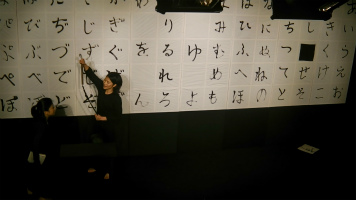 いうえお
きくけこ
しせそ
ちつてと
にぬねの
ひふへほ
みむめも
ゆよ
りるれろ
をん
ぎぐ
じず
ぢづでど
びぶべ
ぷぺぽ